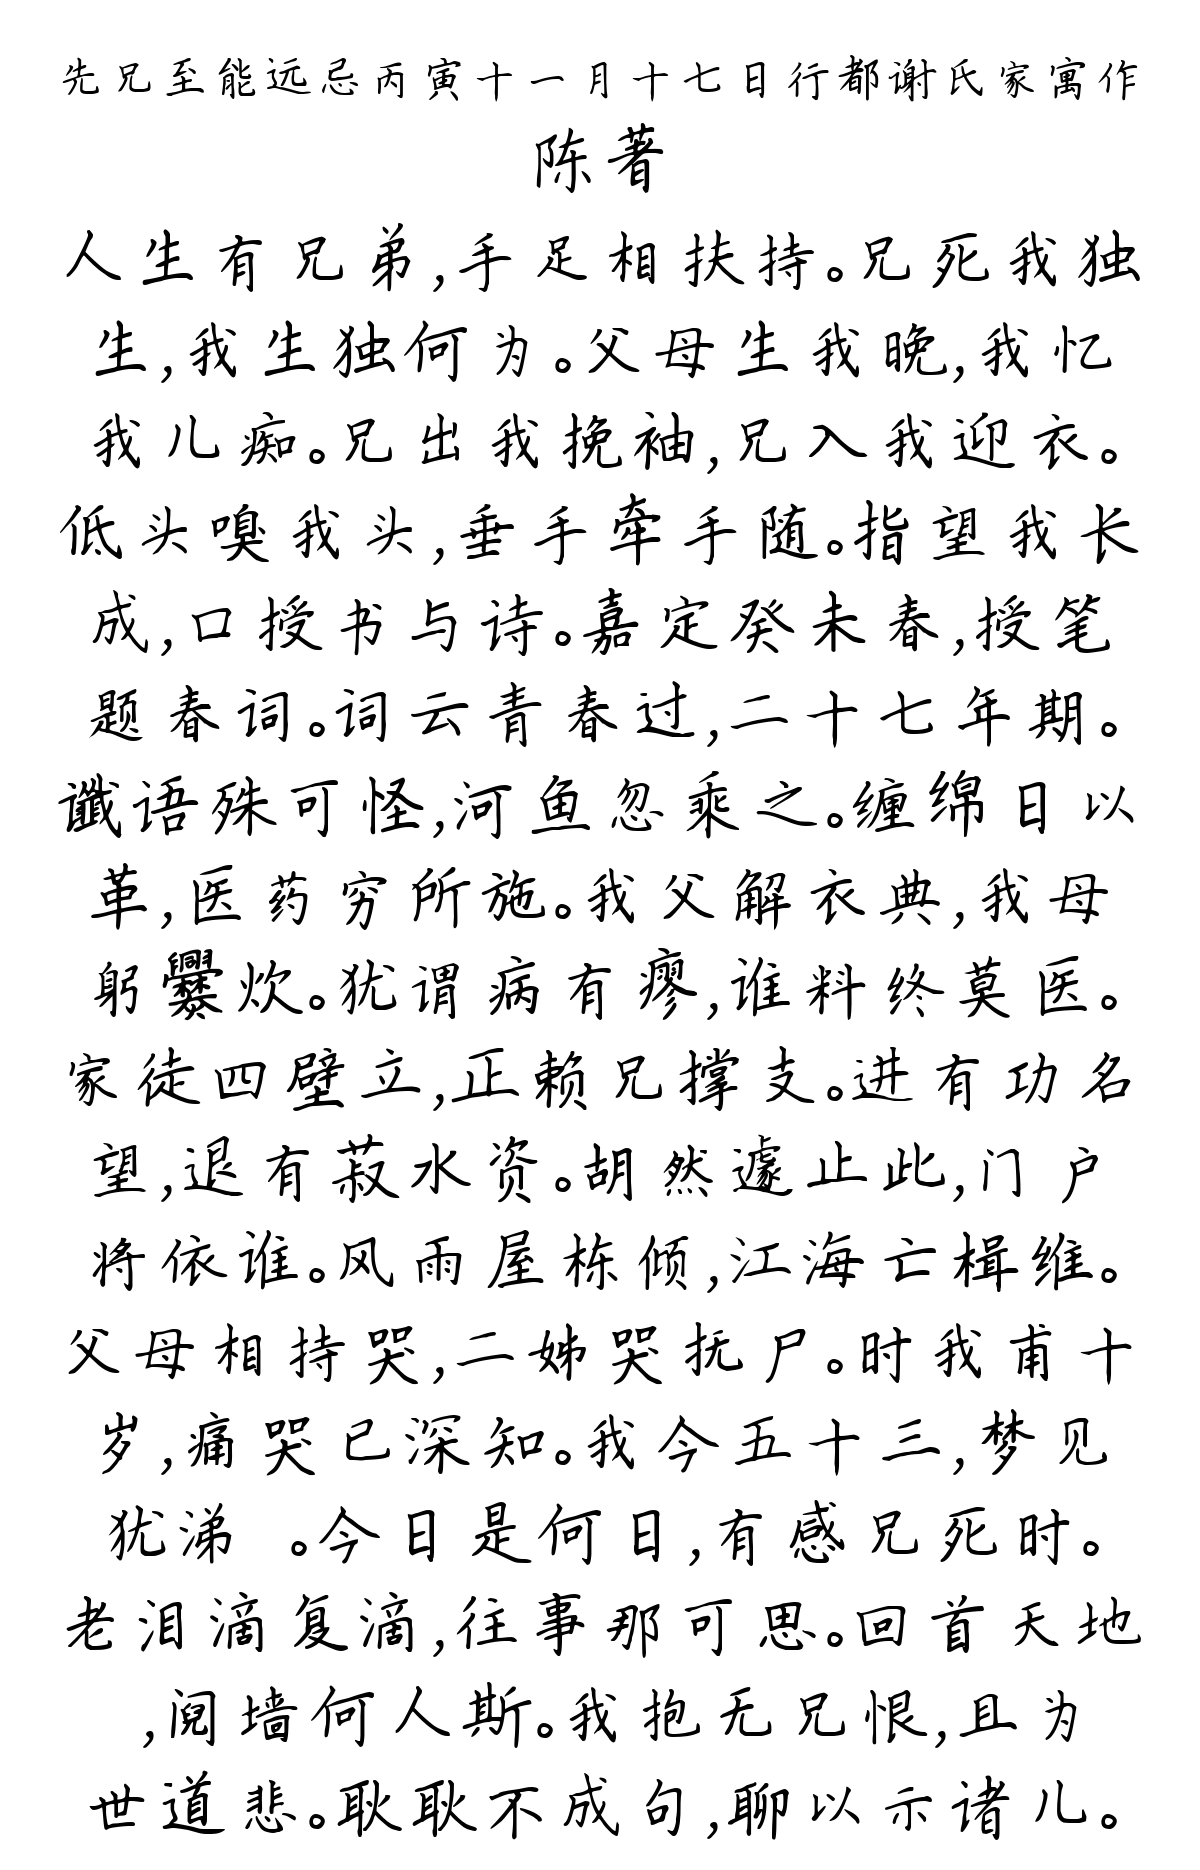 先兄至能远忌丙寅十一月十七日行都谢氏家寓作
陈著
人生有兄弟,手足相扶持。兄死我独
生,我生独何为。父母生我晚,我忆
我儿痴。兄出我挽袖,兄入我迎衣。
低头嗅我头,垂手牵手随。指望我长
成,口授书与诗。嘉定癸未春,授笔
题春词。词云青春过,二十七年期。
谶语殊可怪,河鱼忽乘之。缠绵日以
革,医药穷所施。我父解衣典,我母
躬爨炊。犹谓病有瘳,谁料终莫医。
家徒四壁立,正赖兄撑支。进有功名
望,退有菽水资。胡然遽止此,门户
将依谁。风雨屋栋倾,江海亡楫维。
父母相持哭,二姊哭抚尸。时我甫十
岁,痛哭已深知。我今五十三,梦见
犹涕 。今日是何日,有感兄死时。
老泪滴复滴,往事那可思。回首天地
,阋墙何人斯。我抱无兄恨,且为
世道悲。耿耿不成句,聊以示诸儿。